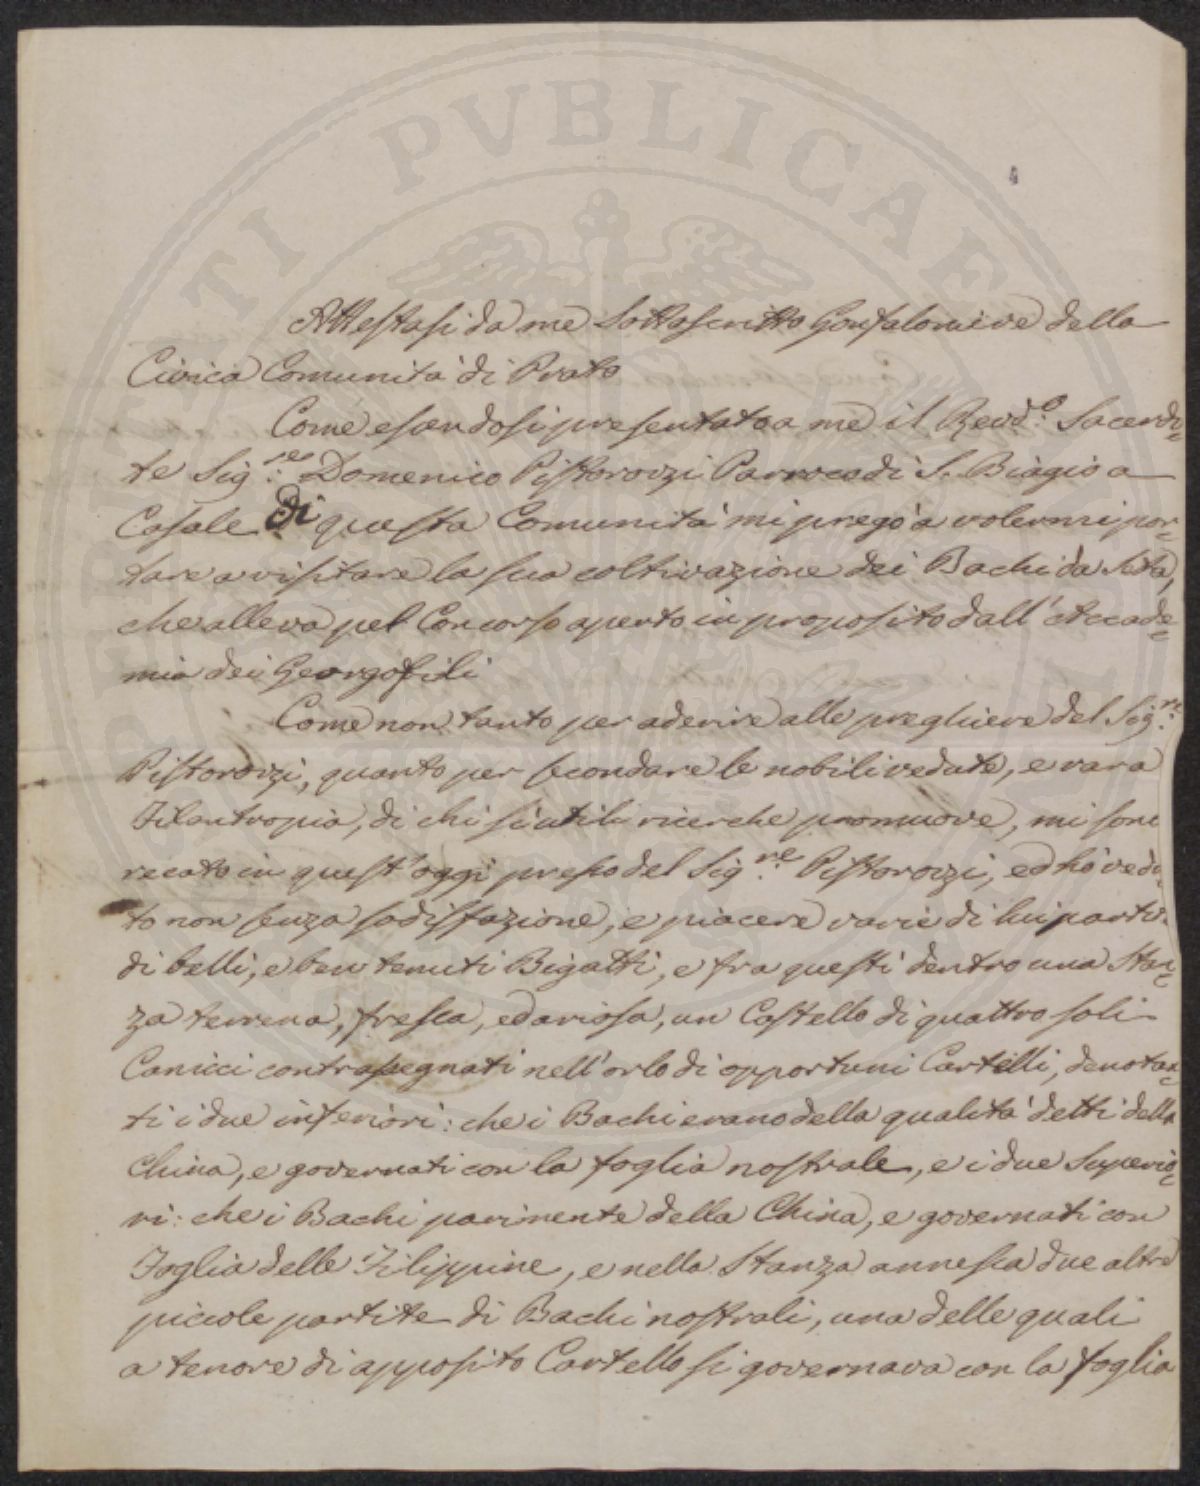 PROSPERITATI PVBLICAE AVGENDAE
Attestasi da me Sottoscritto Gonfaloniere della
Civica Comunità di Prato
Come essendosi presentato a me il Revd.o Sacerdo=
te Sig.re Domenico Pistorozzi Parroco di S. Biagio a
Casale di questa Comunità mi pregò a volermi por=
tare a visitare la sua coltivazione dei Bachi da Seta,
che alleva pel Concorso aperto in proposito dall'Accade=
mia dei Georgofili
Come non tanto per aderire alle preghiere del Sig.re
Pistorozzi, quanto per secondare le nobili vedute, e rara
Filantropia, di chi sì utili ricerche promuove, mi sono
recato in quest'oggi presso del Sig.re Pistorozzi, ed hò vedu
to non senza sodisfazione, e piacere varie di lui partite
di belli, e ben tenuti Bigatti, e fra questi dentro una Stan=
za terrena, fresca, ed ariosa, un Castello di quattro soli
Canicci contrassegnati nell'orlo di opportuni Cartelli, denotan=
ti i due inferiori: che i Bachi erano della qualità detti della
China, e governati con la foglia nostrale, e i due Superio=
ri: che i Bachi parimente della China, e governati con
Foglia delle Filippine, e nella Stanza annessa due altre
piccole partite di Bachi nostrali, una delle quali
a tenore di apposito Cartello si governava con la foglia